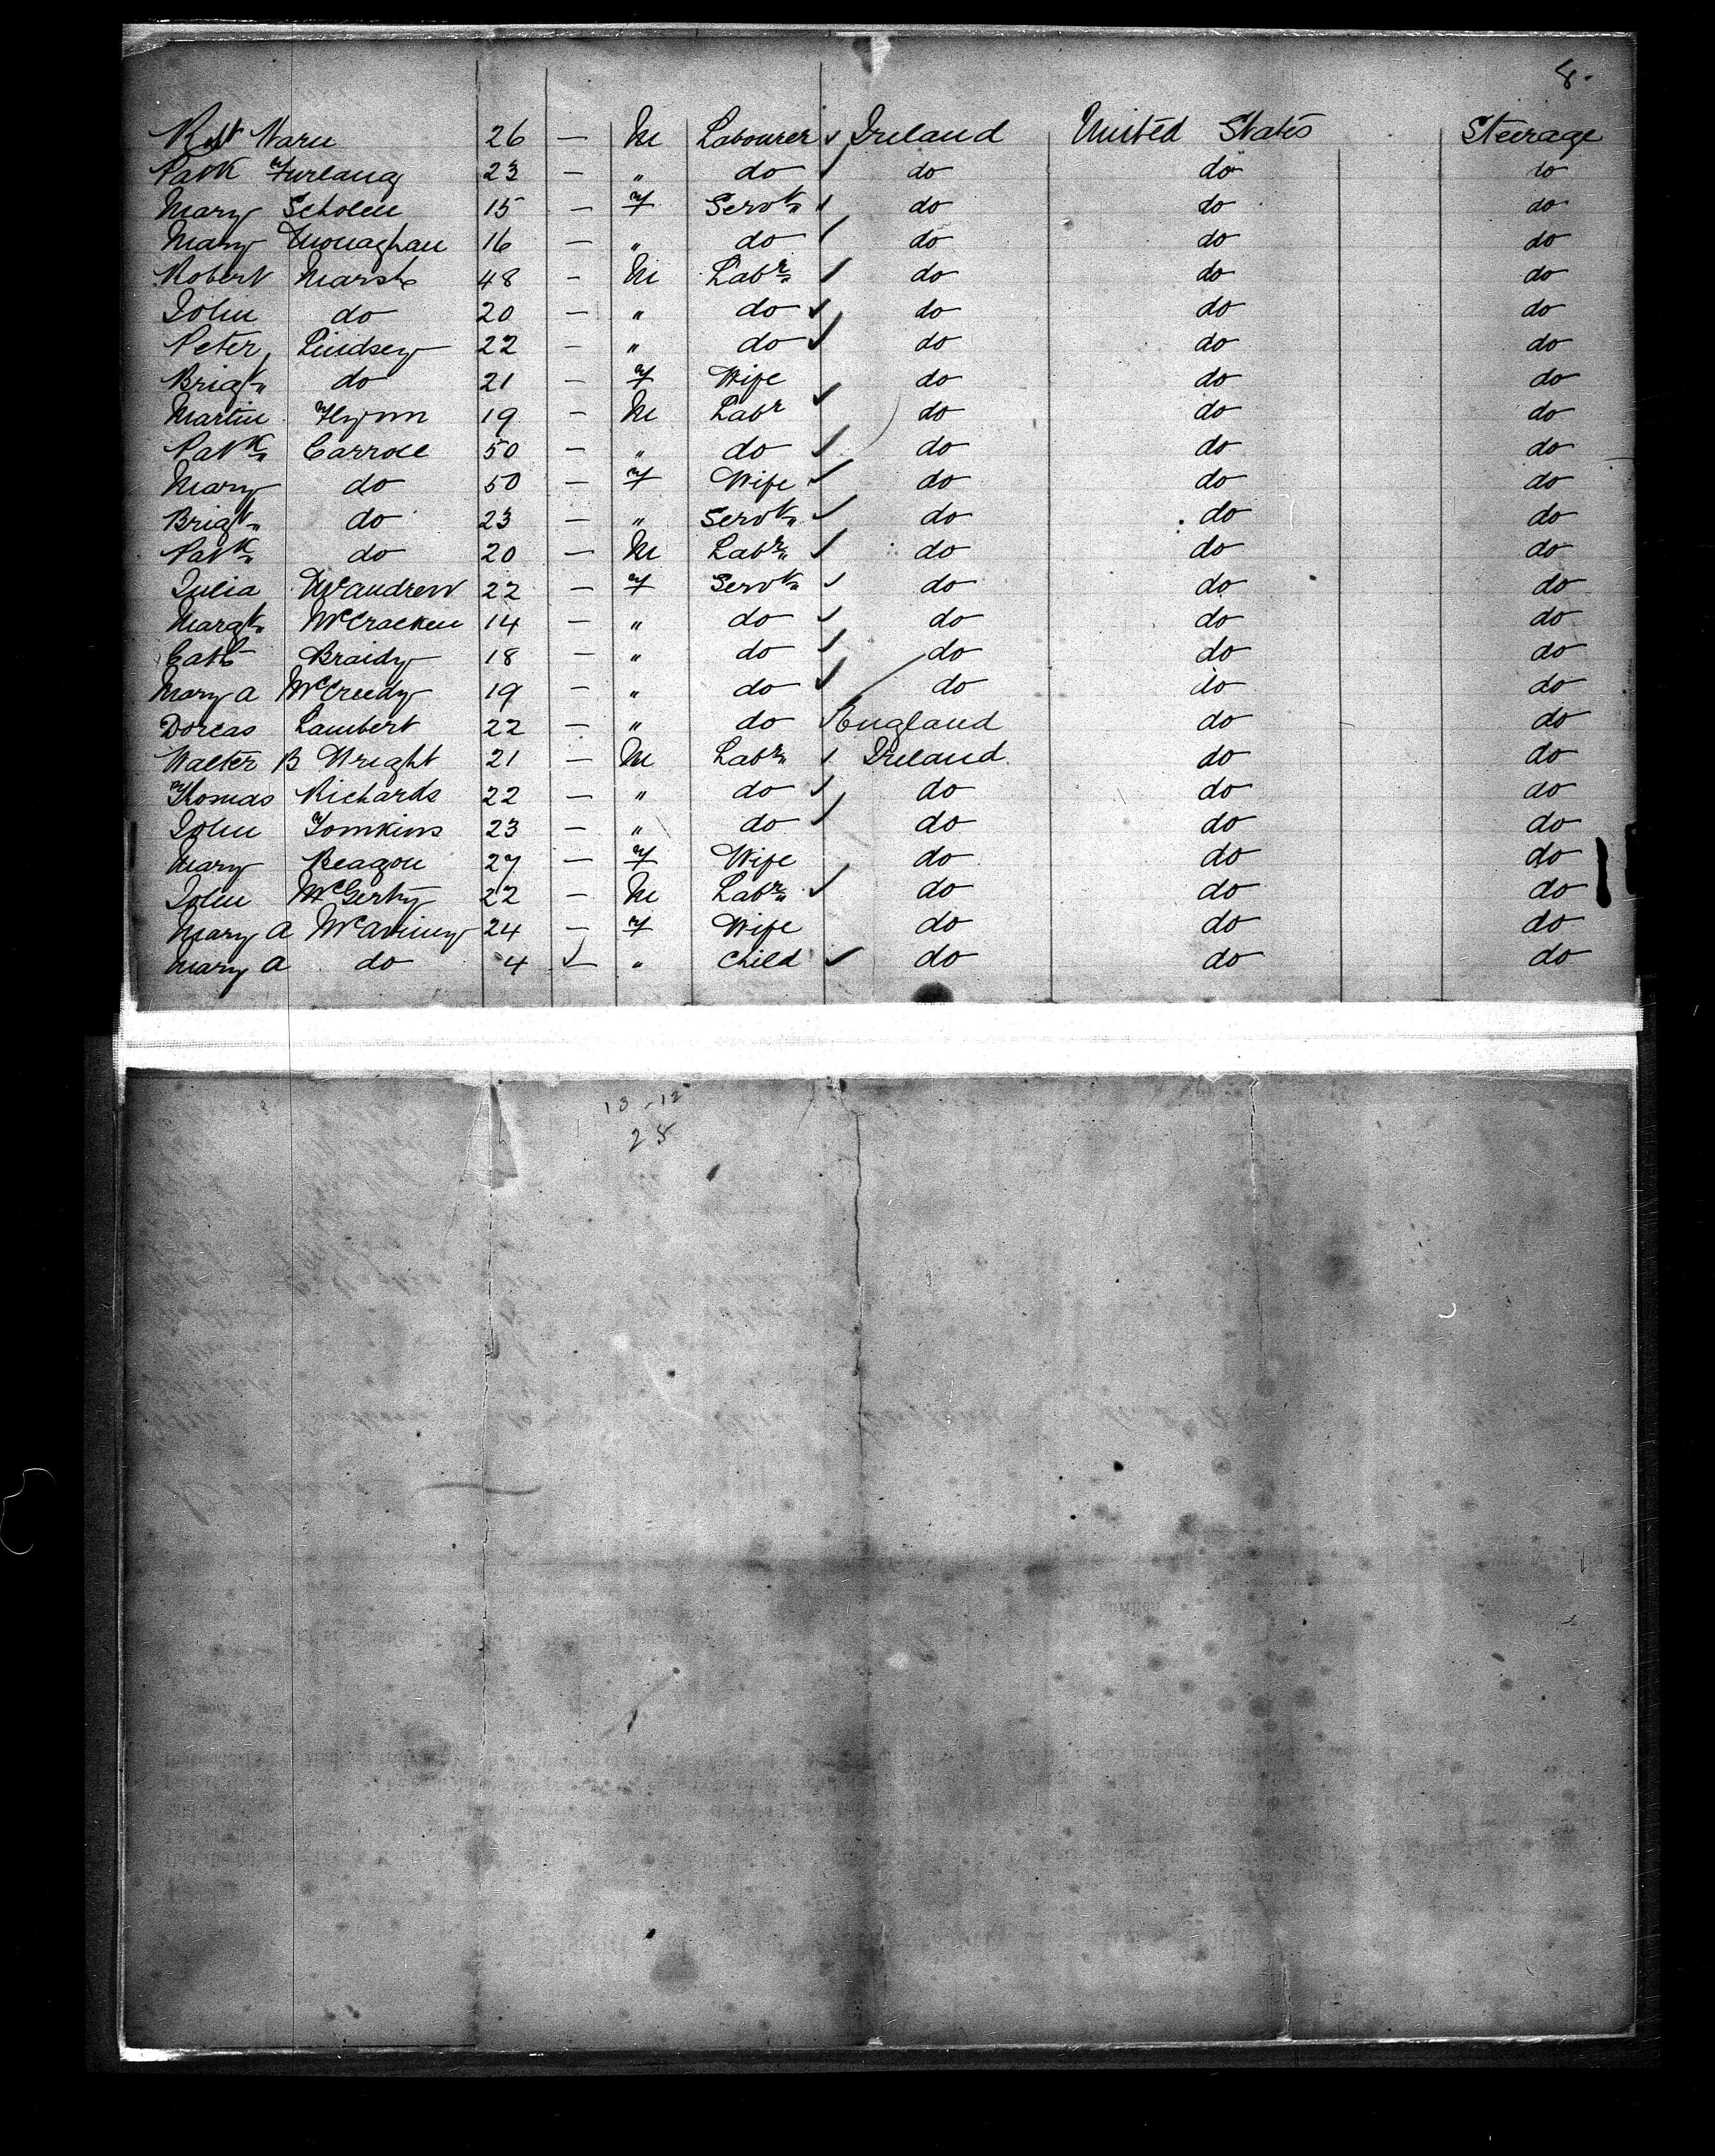 8.
Robt Ware 26 — M Labourer Ireland United States Steerage
Patk Furlang 23 — " do do do do
Mary Scholes 15 — F Servt do do do
Mary Monaghan 16 — " do do do do
Robert Marsh 48 — M Labr do do do
John do 20 — " do do do do
Peter Lindsey 22 — " do do do do
Brigt do 21 — F Wife do do do
Martin Flynn 19 — M Labr do do do
Patk Carroll 50 — " do do do do
Mary do 50 — F Wife do do do
Brigt do 23 — " Servt do do do
Patk do 20 — M Labr do do do
Julia McAndrew 22 — F Servt do do do
Margt McCracken 14 — " do do do do
Cath Braidy 18 — " do do do do
Mary A McCreedy 19 — " do do do do
Dorcas Lambert 22 — " do England do do
Walter B Wright 21 — M Labr Ireland do do
Thomas Richards 22 — " do do do do
John Tomkins 23 — " do do do do
Mary Reagon 27 — F Wife do do do
John McGerty 22 — M Labr do do do
Mary A 24 — F Wife do do do
Mary A do 4 — " Child do do do
13 - 12
25